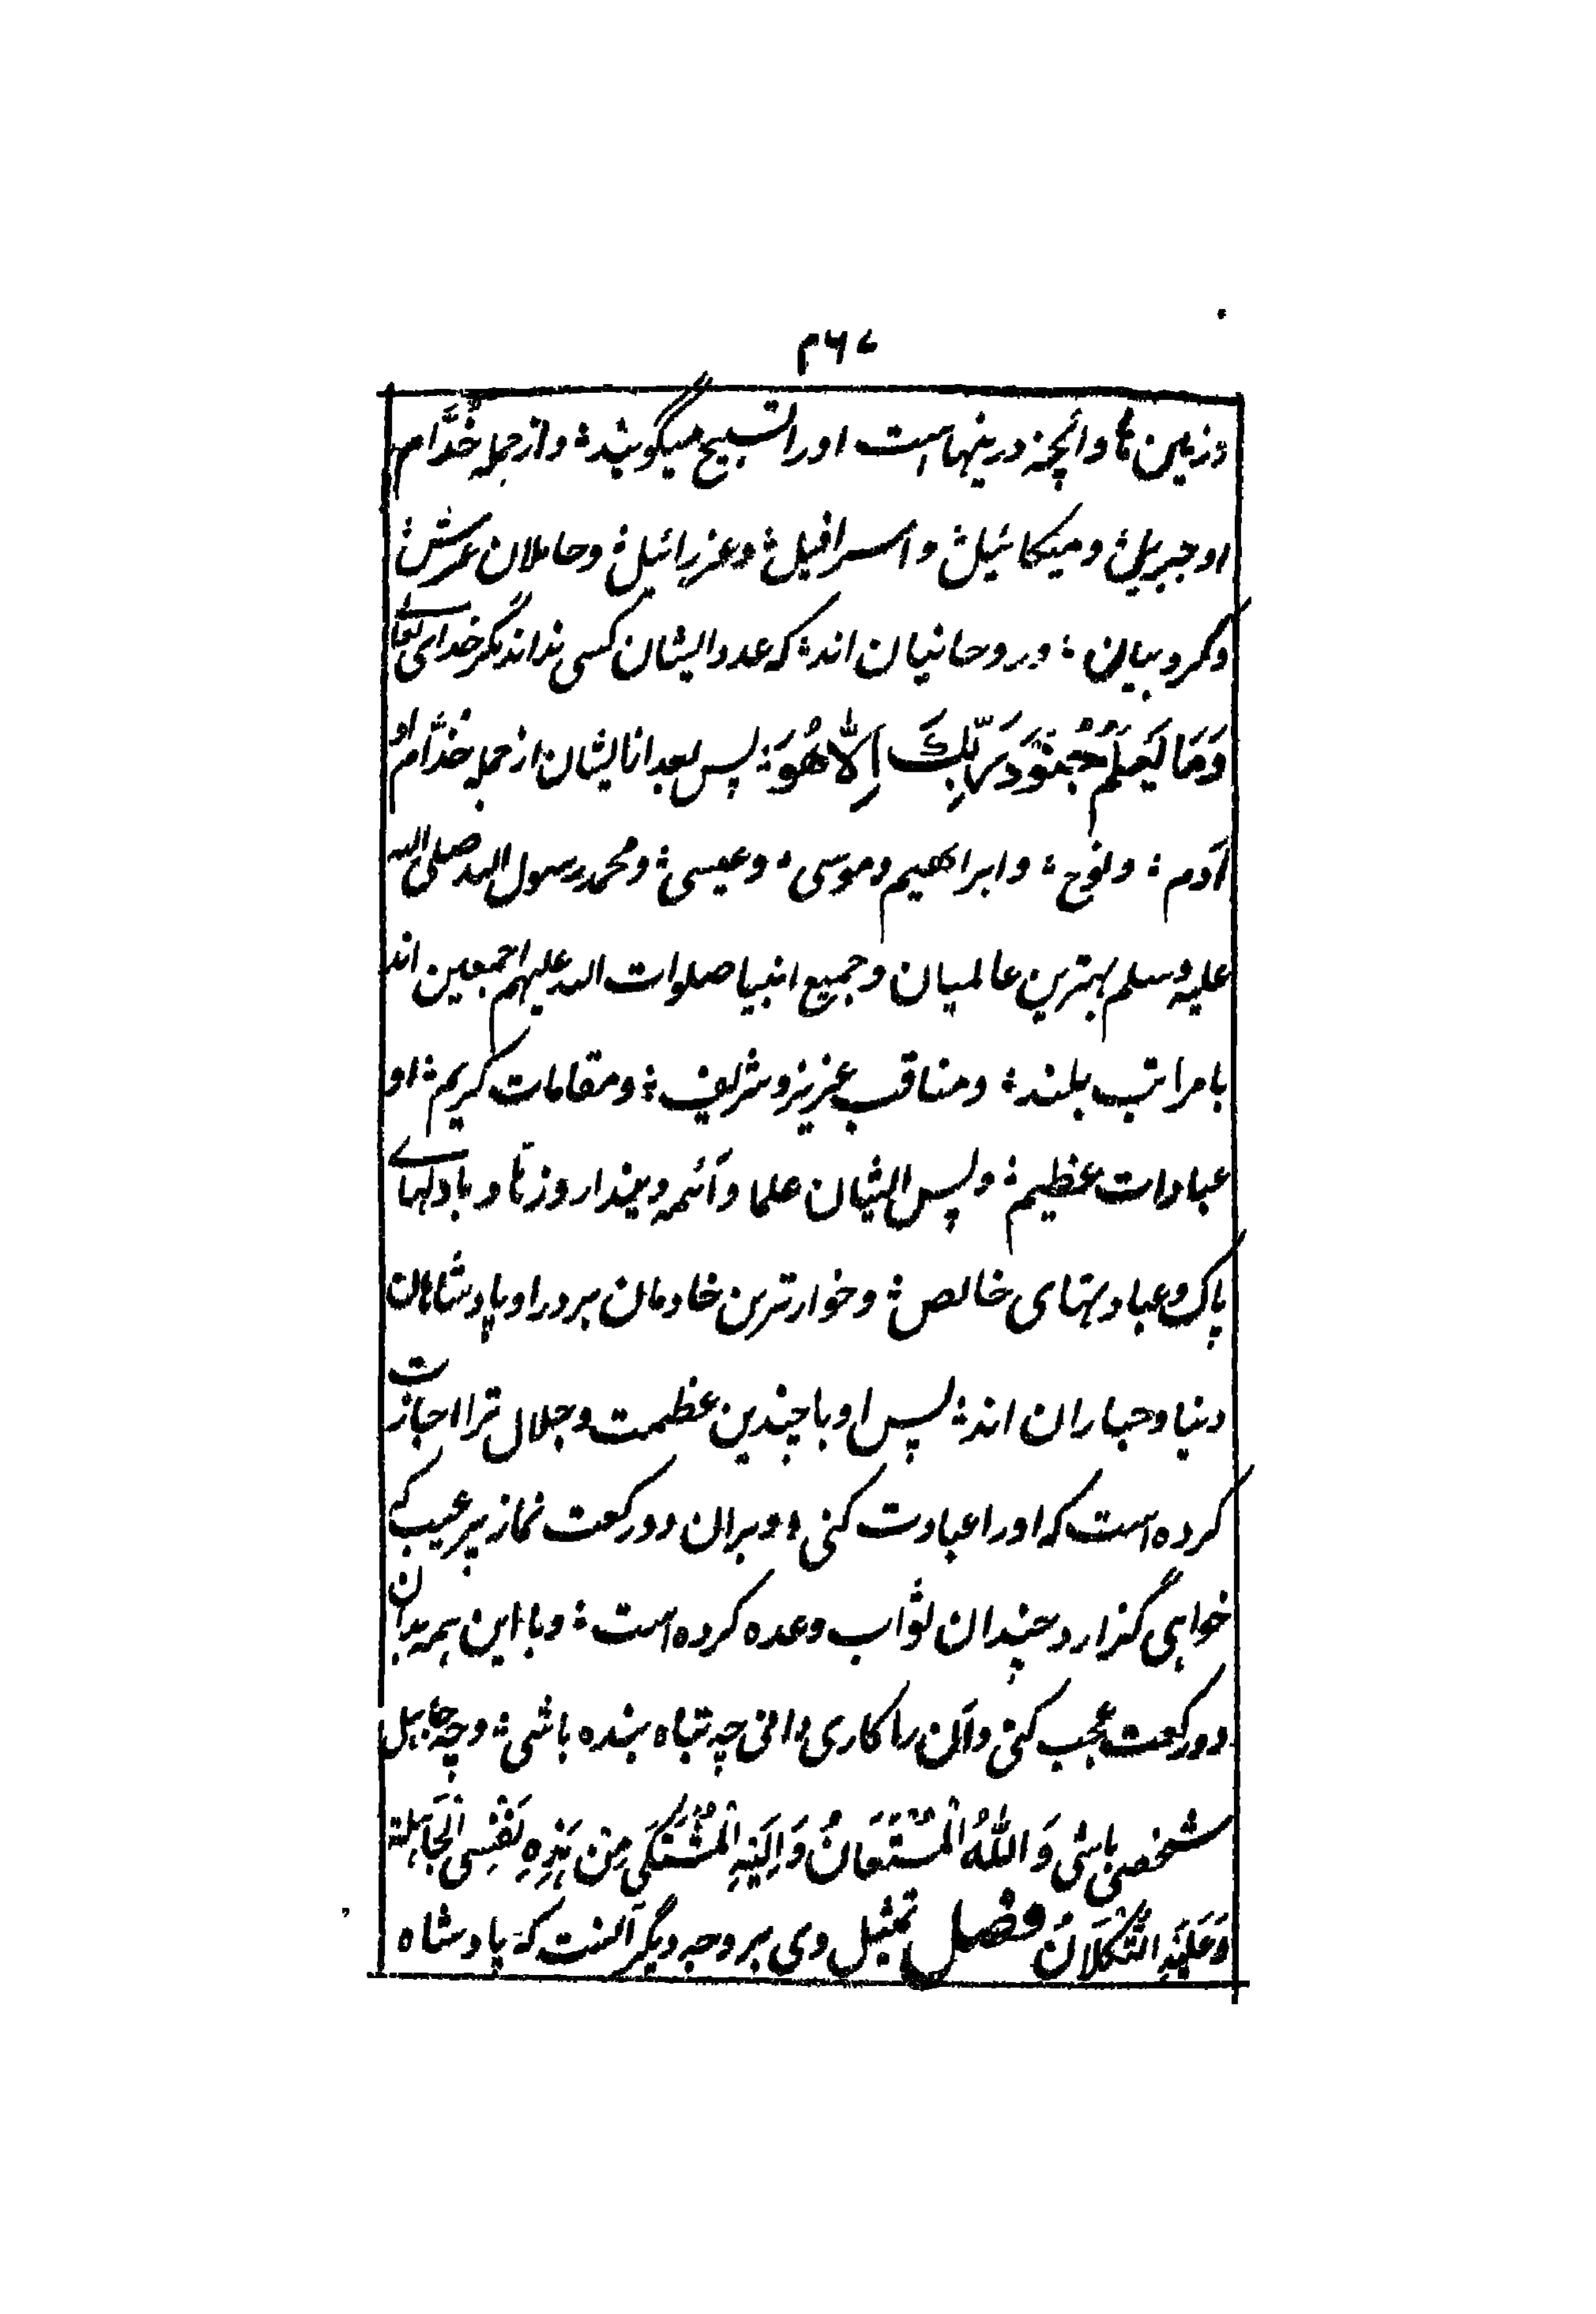 ۲۶۷
وزمین ہا وانچہ درینہاست اورا تسبیح میگویند؛ واز جملہ خُدَّام
او جبریل؛ ومیکائیل؛ واسرافیل؛ وعزرائیل؛ وحاملان عرش؛
وکروبیان؛ وروحانیان اند؛ کہ عدد ایشان کسی نداند مگر خدای تعالے
وَمَا یَعْلَمُ جُنُوْدَ رَبِّكَ اِلَّا هُوَ؛ پس بعد ازایشان از جملہ خدَّام او
آدم؛ ونوح؛ وابراهیم وموسی؛ وعیسی؛ ومحمد رسول اللہ صلی اللہ
علیہ وسلم بہترین عالمیان وجمیع انبیا صلوات اللہ علیہم اجمعین اند
با مراتب بلند؛ ومناقب عزیز وشریف؛ ومقامات کریم؛ او
عبادات عظیم؛ وپس ایشان علما وآئمہ دیندار وزہاد بادلہاے
پاک وعبادتہای خالص؛ وخوارترین خادمان بر در او پادشاہان
دنیا وجباران اند؛ پس او با چندین عظمت وجلال ترا اجازت
کردہ است کہ اورا عبادت کنی؛ وبران دورکعت نماز پر عیب کہ
خواہی گزارد چندان ثواب وعدہ کردہ است؛ وبا این ہمہ بدان
دورکعت عجب کنی وآن را کاری دانی چہ تباہ بندہ باشی؛ وچہ جاہل
شخصی باشی وَاللّٰہُ الْمُسْتَعَانُ وَاِلَیْہِ الْمُشْتَکٰی مِنْ ہٰذِہٖ نَفْسِی الْجَاہِلَۃِ
وَعَلَیْہِ التُّکْلَانُ فصل تمثیل وی بر وجہ دیگر آنست کہ پادشاہ